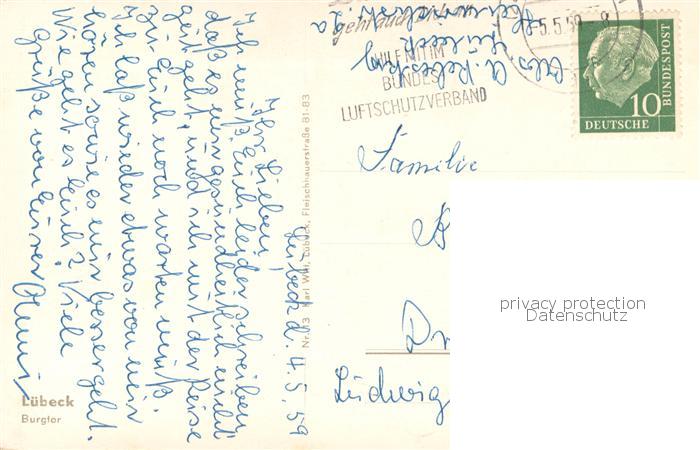 Lübeck d. 4.5.59
Ihr Lieben!
Ich muß Euch leider schreiben
daß es mir gesundheitlich nicht
gut geht, und ich mit der Reise
zu Euch noch warten muß.
Ich laß wieder etwas von mir
hören sowie es mir besser geht.
Wie geht es Euch? Viele
Grüße von Eurer
Lübeck
Burgtor
Nr. 13 Karl Will, Lübeck, Fleischhauerstraße 81-83
Abs. A.
Lübeck
geht auch
HILF MIT IM
BUNDES
LUFTSCHUTZVERBAND
5.5.59-8
10
DEUTSCHE
BUNDESPOST
Familie
B
Dr
Ludwig
privacy protection
Datenschutz